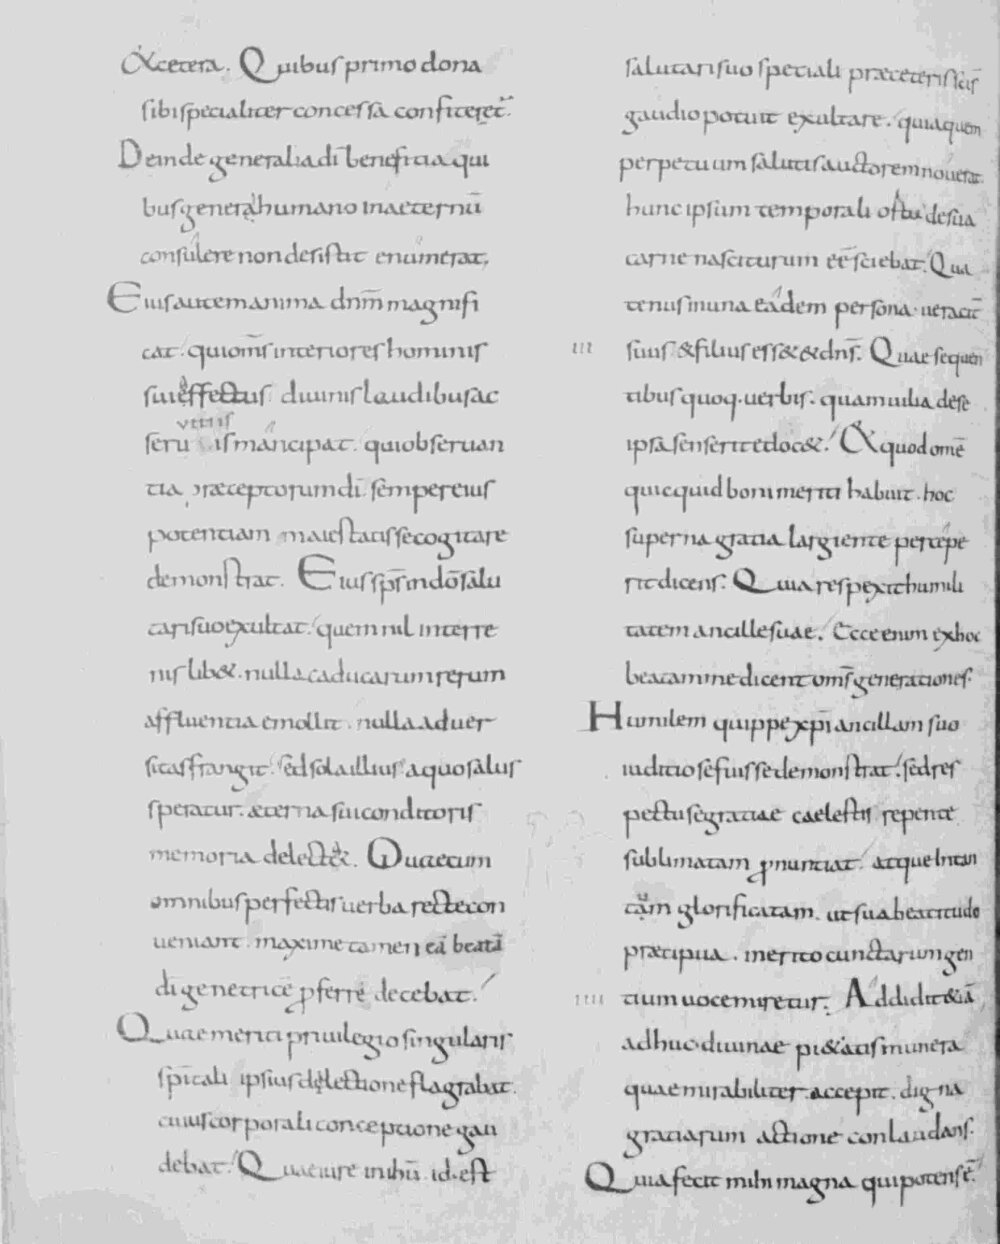 & cetera. Quibus primo dona
sibi specialiter concessa confiteret̄.
Deinde generalia dī beneficia qui
bus generi humano in aeternū
consulere non desistit enumerat,
Eius autem anima dnm̄ magnifi
cat. qui oms̄ interiores hominis
sui effectus divinis laudibus ac
servitiis mancipat. qui observan
tia præceptorum dī. semper eius
potentiam maiestatis se cogitare
demonstrat. Eius sps̄ in dō salu
tari suo exultat. quem nil in terre
nis lib&. nulla caducarum rerum
affluentia emollit. nulla adver
sitas frangit. sed sola illius a quo salus
speratur. æterna sui conditoris
memoria delect&. Quae cum
omnibus perfectis verba recte con
veniant. maxime tamen eā beatā
di genetricē ꝓferre decebat.
Quae meriti privilegio singularis
spītali ipsius dilectione flagrabat.
cuius corporali conceptione gau
debat. Quae iure in ihū. id est
salutari suo speciali præ ceteris scīs
gaudio potuit exultare. quia quem
perpetuum salutis auctorem noverat.
hunc ipsum temporali ortu de sua
carne nasciturum eē sciebat. Qua
tenus in una eademque persona. veracit̄
III suus & filius ess& & dns̄. Quae sequen
tibus quoq. verbis. quam vilia de se
ipsa senserit edoc&. & quod omē
quicquid boni meriti habuit. hoc
superna gratia largiente percepe
rit dicens. Quia respexit humili
tatem ancille suae. Ecce enim ex hoc
beatam me dicent oms̄ generationes.
Humilem quippe xpī ancillam suo
iuditio se fuisse demonstrat. sed res
pectu se gratiae caelestis repente
sublimatam ꝓnuntiat. atque in tan
tum glorificatam. ut sua beatitudo
præcipua. merito cunctarum gen
IIII tium voce miretur. Addidit & iā
adhuc divinae pi&atis munera
quae mirabiliter accepit. digna
gratiarum actione conlaudans.
Quia fecit mihi magna qui potens ē.